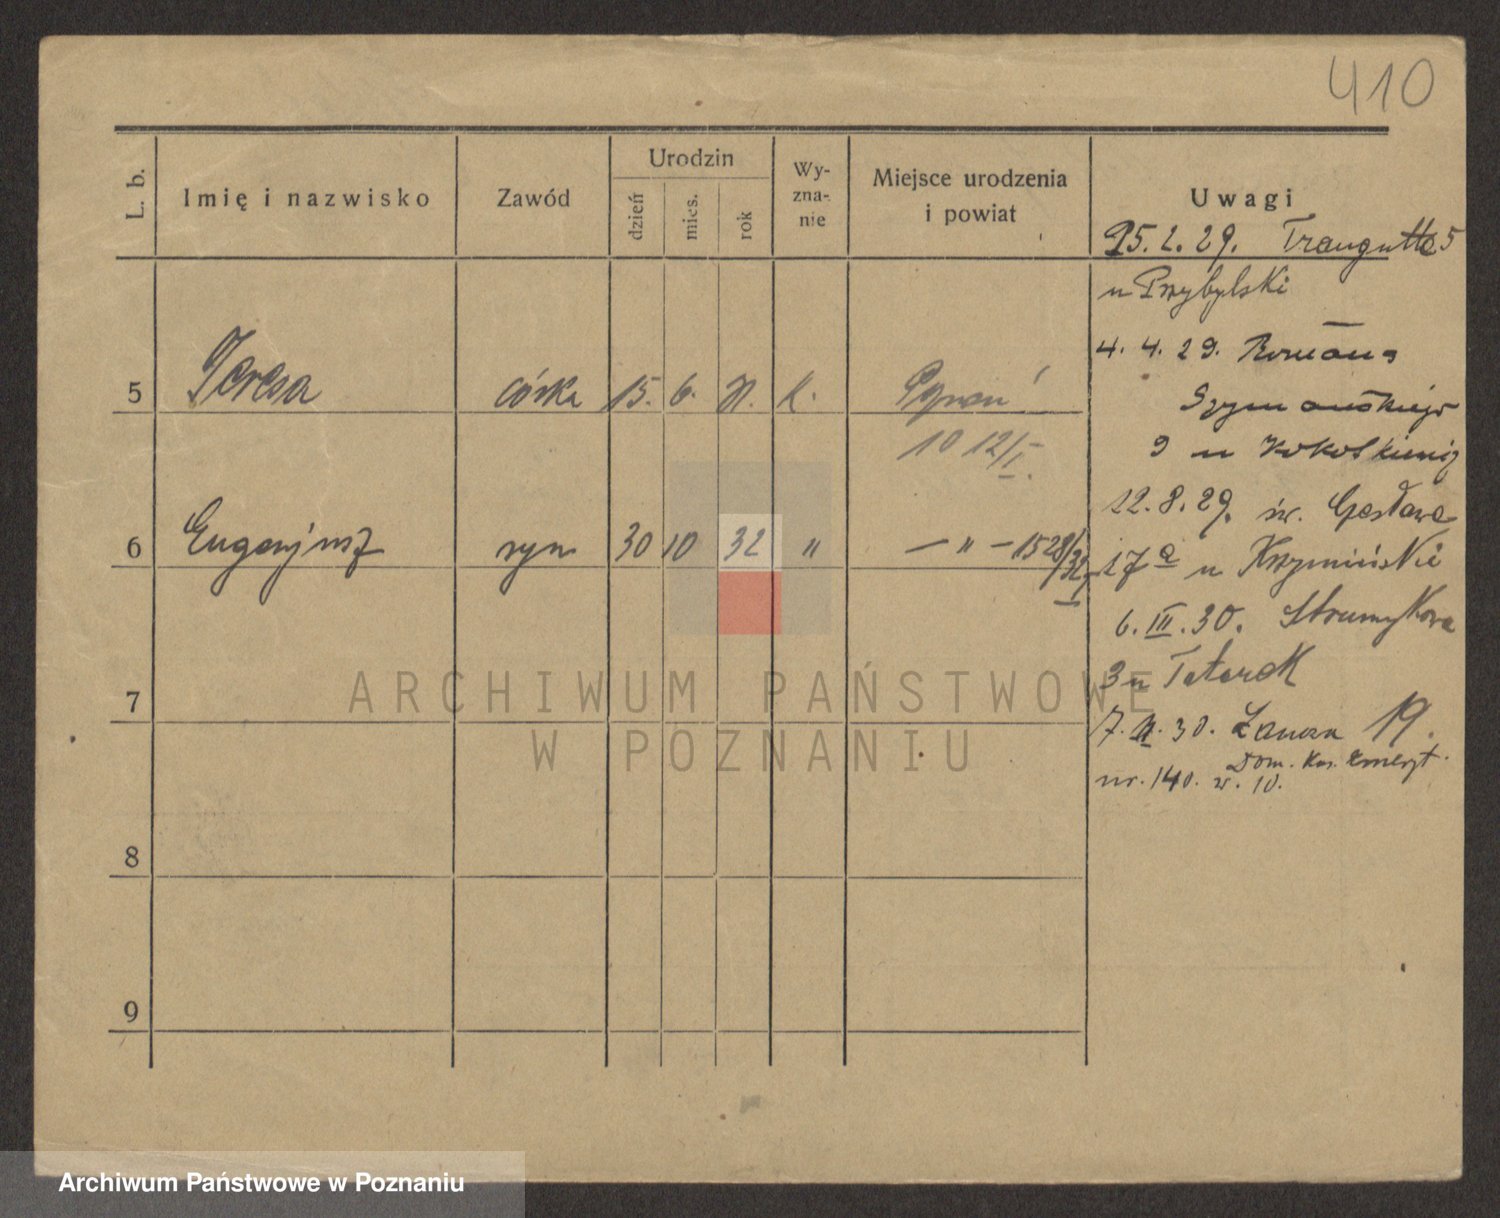 410
L. b.
Imię i nazwisko
Zawód
Urodzin
dzień
mies.
rok
Wy-
zna-
nie
Miejsce urodzenia
i powiat
Uwagi
25.2.29. Traugutta 5
u Przybylski
4.4.29. Romana
Szymańskiego
9 u
12.8.29. św. Czesława
17a u Krzymiński
6.III.30. Strumykowa
3 u Tatarek
7. 30. 19.
Dom. Kas. Emeryt.
nr. 140. w. 10.
5 Teresa córka 15. 6. k. Poznań
10 12/I.
6 Eugenjusz syn 30 10 32 " — " — 1528/32
7
8
9
ARCHIWUM PAŃSTWOWE
W POZNANIU
Archiwum Państwowe w Poznaniu